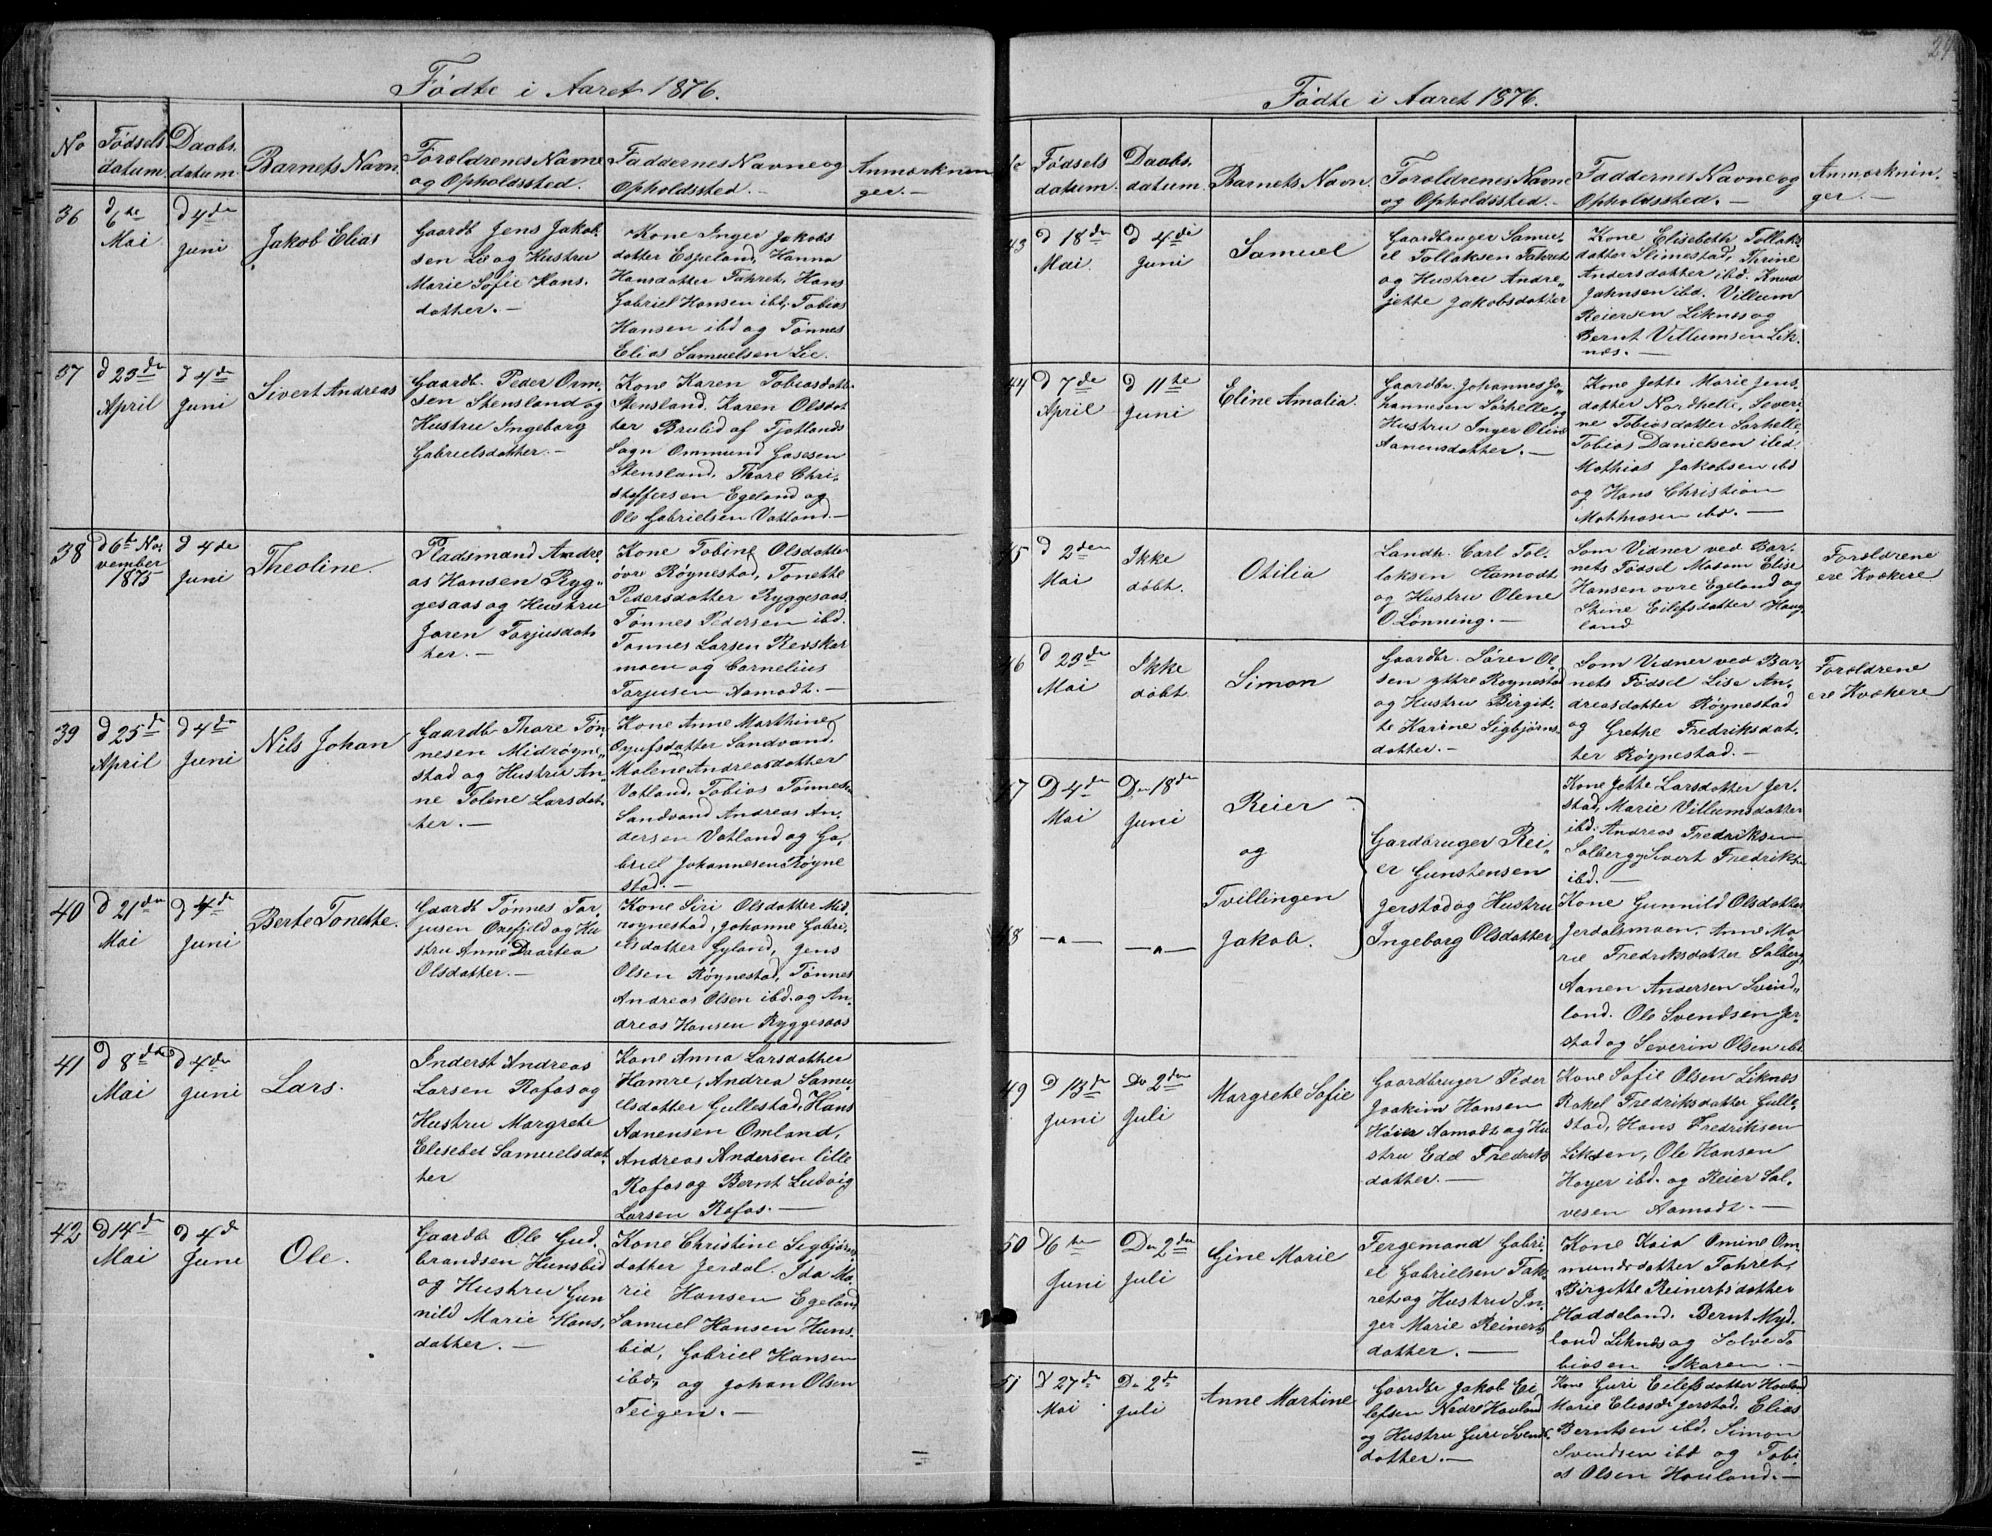 Fødte i Aaret 1876.
No
Fødsels
datum.
Daabs.
datum.
Barnets Navn.
Foroldrenes Navne
og Opholdssted.
Faddernes Navne og
Opholdssted. —
Anmærknin
ger. —
36
d 6te
Mai
d 4de
Juni
Jakob Elias
Gaardb. Jens Jakob.
sen Lie og Hustru
Marie Sofie Hans.
datter. —
Kone Inger Jakobs
datter Espeland, Hanna
Hansdatter Tahret, Hans
Gabriel Hansen ibd, Tobias
Hansen ibd og Tønnes
Elias Samuelsen Lie.
37
d 23de
April
d 4de
Juni
Sivert Andreas
Gaardb. Peder Orm,
sen Stensland og
Hustru Ingeborg
Gabrielsdatter. —
Kone Karen Tobiasdatt.
Stensland. Karen Olsdat
ter Brulid af Fjotlands
Sogn Ommund Gosesen
Stensland, Thore Chri.
stoffersen Egeland og
Ole Gabrielsen Vatland. —
38
d 6te No.
vember
1875
d 4de
Juni
Theoline.
Pladsmand Andre.
as Hansen Ryg„
gesaas og Hustru
Joren Torjusdat,
ter. —
Kone Tobine Olsdatter
øvre Røynestad, Tonette
Pedersdatter Ryggesaas.
Tønnes Pedersen ibd.
Tønnes Larsen Revskar
moen og Cornelius
Torjusen Aamodt. —
39
d 25de
April
d 4de
Juni
Nils Johan
Gaardb. Thore Tøn,
nesen Midrøyne„
stad og Hustru An,
ne Tolene Larsdat,
ter. —
Kone Anne Marthine
Oyufsdatter Sandvand.
Malene Andreasdatter
Vatland. Tobias Tønnes.
Sandvand Andreas An,
dersen Vatland og Ga,
briel Johannesen Røyne
stad. —
40
d 21de
Mai
d 4de
Juni
Berte Tonette.
Gaardb Tønnes Tor,
jusen Oxefjeld og Hu
stru Anne Daartea
Olsdatter. —
Kone Siri Olsdatter Mid,
røynestad, Johanne Gabri,
elsdatter Gyland, Jens
Olsen Røynestad, Tønnes
Andreas Olsen ibd. og An,
dreas Hansen Ryggesaas
41
d 8de
Mai
d 4de
Juni
Lars.
Inderst Andreas
Larsen Rafos og
Hustru Margrete
Elisebet Samuelsdat,
ter
Kone Anna Larsdatter
Hamre, Andrea Samu,
elsdatter Gullestad, Hans
Aanensen Omland,
Andreas Andersen lille
Rafos og Bernt Ludvig
Larsen Rafos. —
42
d 14de
Mai
d 4d
June
Ole.
Gaardb Ole Gud,
brandsen Hunsbid
og Hustru Gun
nild Marie Hans,
datter. —
Kone Christine Sigbjørns
datter Jerdal. Ida Ma,
rie Hansen Egeland
Samuel Hansen Huns.
bid, Gabriel Hansen
ibd, og Johan Olsen
Feigen. —
Fødte i Aaret 1876.
Fødsels
datum.
Daabs.
datum.
Barnets Navn.
Foroldrenes Navne
og Opholdssted. —
Faddernes Navne og
Opholdssted. —
Anmærknin.
ger. —
43
d 18de
Mai
d 4de
Juni
Samuel
Gaardbruger Samu„
el Tollaksen Tahret
og Hustru Andre„
jette Jakobsdatter
Kone Elisebeth Tollak.
datter Slimestad, Thrine
Andersdatter ibd. Knud
Jahnsen ibd. Villum
Reiersen Liknes og
Bernt Villumsen Lik,
nes. —
44
d 7de
April
d 11te
Juni
Eline Amalia.
Gaardbr. Johannes Jo„
hannesen Sørhelle og
Hustru Inger Oline
Aanensdatter. —
Kone Jette Marie Jens
datter Nordhelle, Severi„
ne Tobiasdatter Sørhelle,
Tobias Danielsen ibd.
Mathias Jakobsen ibd
og Hans Christian
Mathiasen ibd. —
45
d 2den
Mai
Ikke
døbt.
Otilia
Landh. Carl Tol„
laksen Aamodt
og Hustru Olene
O. Lønning. —
Som Vidner ved Bar„
nets Fødsel Mosom Elise
Hansen øvre Egeland og
Stine Eilefsdatter Haug
land
Foroldrene
ere Kvækere
46
d 23de
Mai
Ikke
døbt.
Simon
Gaardbr. Søren Ol„
sen yttre Røynestad
og Hustru Birgit„
te Karine Sigbjørns
datter. —
Som Vidner ved Bar„
nets Fødsel Lise An„
dreasdatter Røynestad
og Grethe Fredriksdat,
ter Røynestad. —
Foroldrene
ere Kvækere
47
D 4de
Mai
Den 18de
Juni
Reier
og
Tvillingen
Gardbruger Rei„
er Gunstensen
Jerstad og Hustru
Ingeborg Olsdatter
Kone Jette Larsdatter Jer„
stad, Marie Villumsdatter
ibd. Andreas Fredriksen
Solberg, Sivert Fredriks.
ibd. —
48
—„—
—„—
Jakob.
Kone Gunnild Olsdatter
Jerdalsmoen. Anne Ma„
rie Fredriksdatter Solberg,
Aanen Andersen Svind„
land. Ole Svendsen Jer„
stad og Severin Olsen ibd.
49
D 13de
Juni
De 2den
Juli
Margrete Sofie
Gaardbruger Peder
Joakim Hansen
Høier Aamodt og Hu
stru Edel Fredriks
datter. —
Kone Sofie Olsen Liknes
Rakel Fredriksdatter Gulle.
stad, Hans Fredriksen
Liknes, Ole Hansen
Høyer ibd. og Reier Sal„
vesen Aamodt. —
50
D 6te
Juni
De 2den
Juli
Gine Marie
Fergemand Gabri„
el Gabrielsen Tah„
ret og Hustru In„
ger Marie Reiners
datter. —
Kone Kaia Omine Om„
mundsdatter Tahret,
Birgitte Reinertsdatter
Haddeland. Bernt Myd„
land Liknes og Salve To
biasen Skaren. —
51
D 27de
Mai
De 2de
Juli
Anne Martine
Gaardbr Jakob Ei„
lefsen Nedre Hauland
og Hustru Guri Svends
datter. —
Kone Guri Eilefsdatter Hauland
Marie Eliasdr Jerstad, Elias
Berntsen ibd. Simon
Svendsen ibd og Tobi„
as Olsen Hauland. —